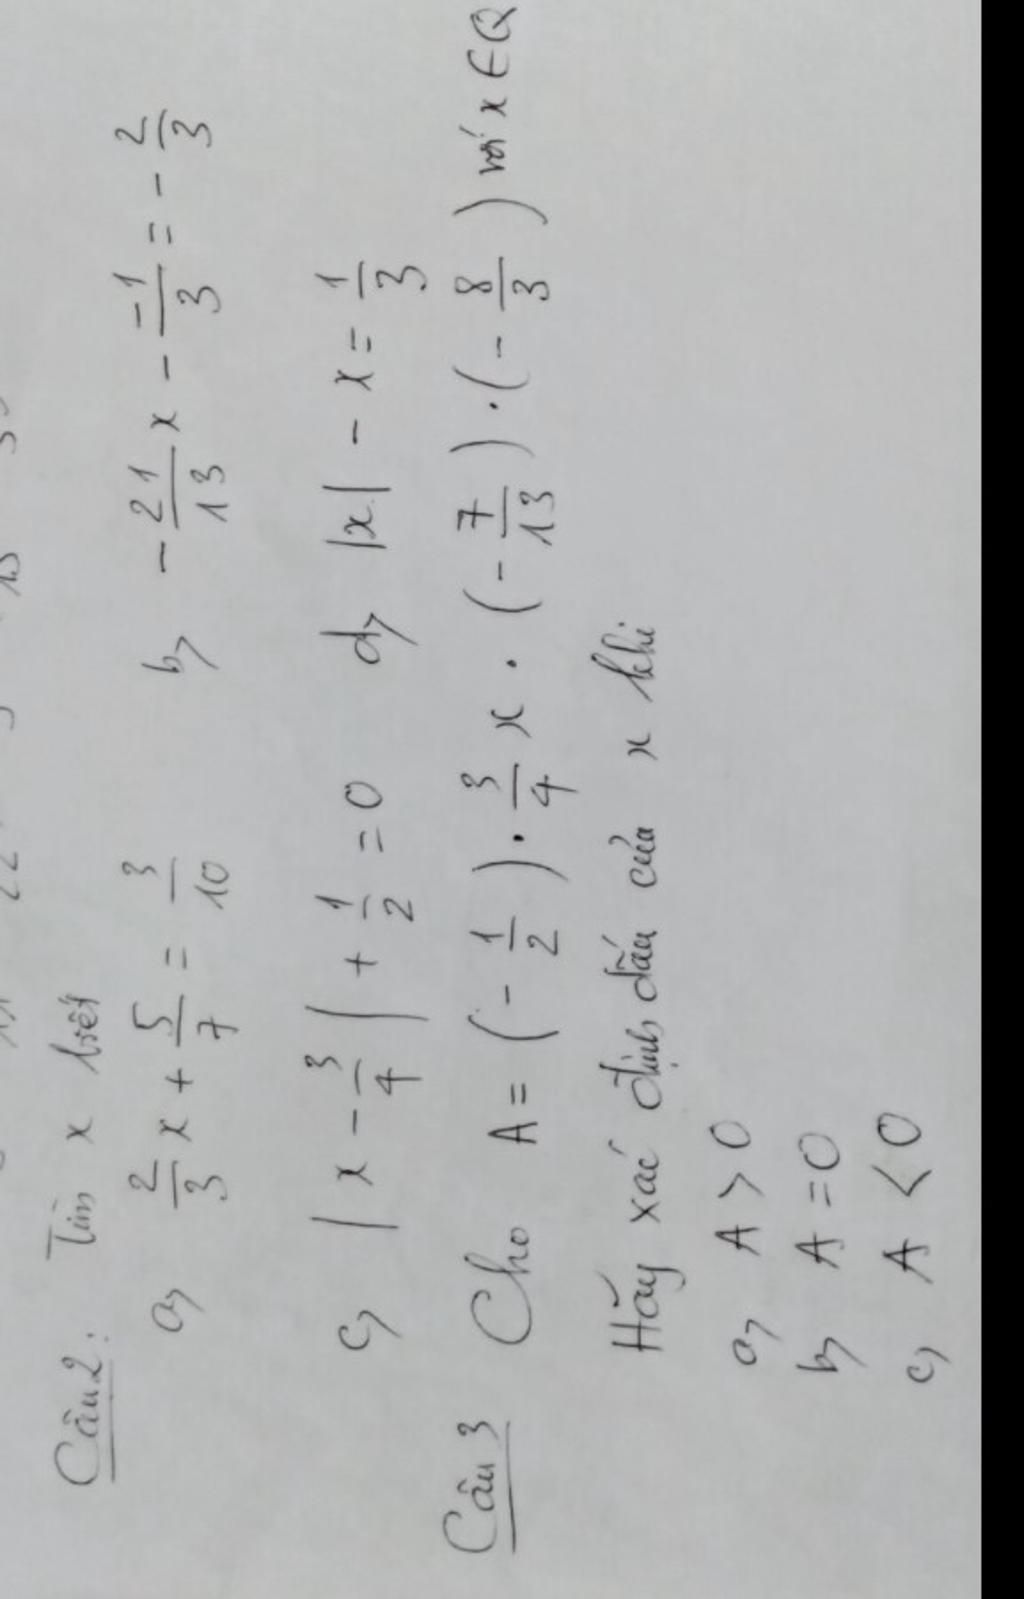 Câu 2: Tìm x biết
a, 2/3 x + 5/7 = 3/10 b, - 21/13 x - -1/3 = - 2/3
c, | x - 3/4 | + 1/2 = 0 d, |x| - x = 1/3
Câu 3 Cho A = (- 1/2) . 3/4 x . (- 7/13) . (- 8/3) với x ∈ Q
Hãy xác định dấu của x khi
a, A > 0
b, A = 0
c, A < 0